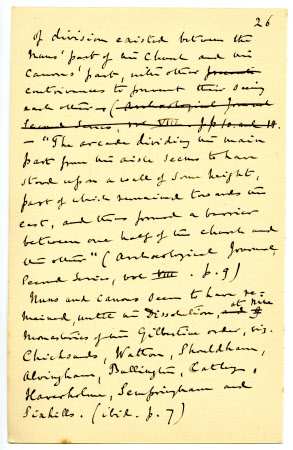 26
of division existed between the
Nuns' part of the Church and the
Canons' part, with other
contrivances to prevent their seeing
each other – (Archaeological Journal
Second Series, vol VIII. pp 10, and 11.
– "The arcade dividing the main
part from the aisle seems to have
stood upon a wall of some height,
part of which remained towards the
east, and thus formed a barrier
between one half of the church and
the other" (Archaeological Journal,
Second Series, vol VIII. p. 9)
Nuns and canons seem to have re-
mained, until the Dissolution, at nine
Monasteries of the Gilbertine order, viz.
Chicksands, Watton, Shouldham,
Alvingham, Bullington, Catley,
Haverholme, Sempringham and
Sixhills. (ibid. p. 7)